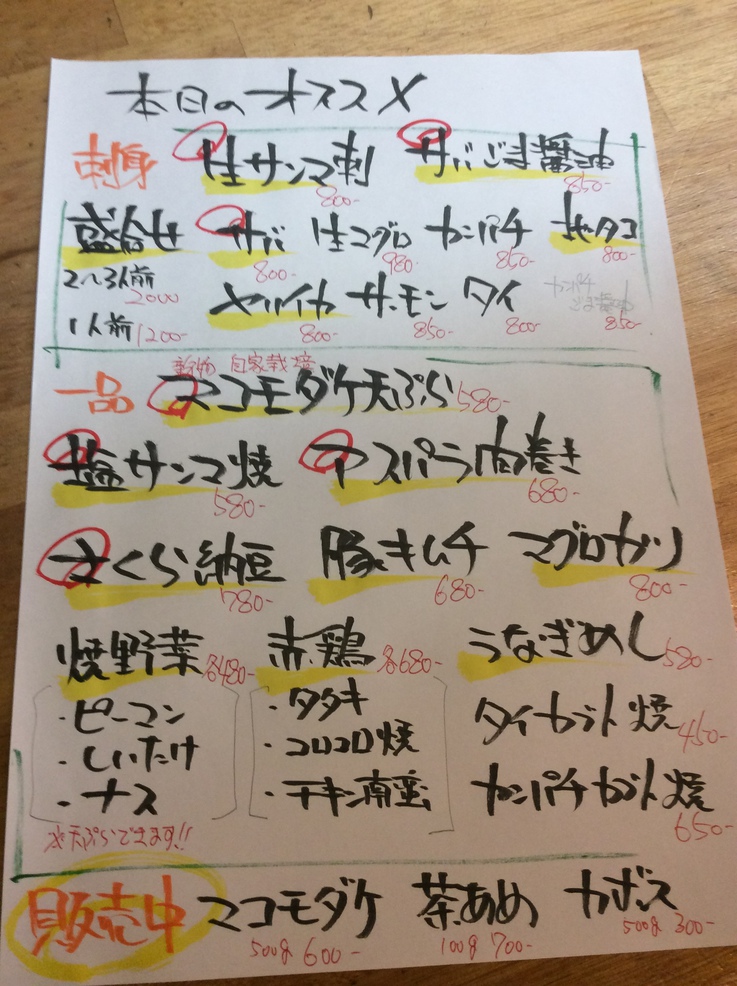 本日のオススメ
刺身 生サンマ刺 サバごま醤油
800- 850-
盛合せ サバ 生マグロ カンパチ 地タコ
800- 980- 850- 800-
2〜3人前 2000
ヤリイカ サーモン タイ カンパチごま醤油
1人前 1200- 800- 850- 800- 850-
新物 自家栽培
一品 マコモダケ天ぷら 580-
塩サンマ焼 アスパラ肉巻き
580- 680-
さくら納豆 豚キムチ マグロカツ
780- 680- 800-
焼野菜 各480- 赤鶏 各680- うなぎめし 580-
・ピーマン ・タタキ タイカブト焼 450-
・しいたけ ・コロコロ焼
・ナス ・チキン南蛮 カンパチカブト焼
650-
※天ぷらできます!!
販売中 マコモダケ 茶あめ カボス
500g 600- 100g 700- 500g 300-